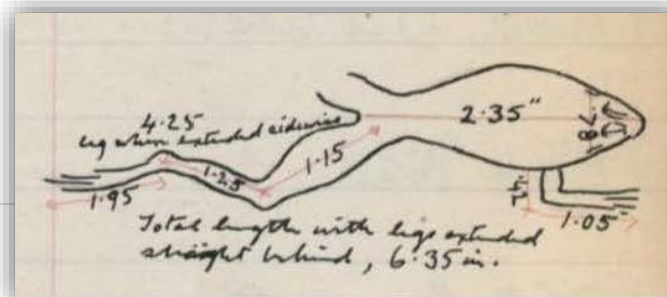 4.25
leg when extended sidewise
2.35"
.78
1.15
1.25
1.95
.42
1.05"
Total length with legs extended
straight behind, 6.35 in.